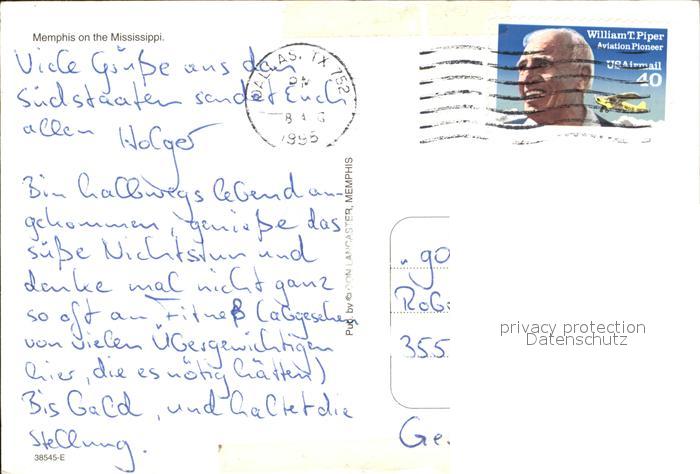 Memphis on the Mississippi.
Viele Grüße aus den
Südstaaten sendet Euch
allen Holger
Bin halbwegs lebend an-
gekommen, genieße das
süße Nichtstun und
denke mal nicht ganz
so oft an Fitneß (abgesehen
von vielen Übergewichtigen
hier, die es nötig hätten)
Bis bald, und haltet die
Stellung.
38545-E
DALLAS, TX 752
PM
1995
Pub. by © DON LANCASTER, MEMPHIS
William T. Piper
Aviation Pioneer
USAirmail
40
"go
Rob
355
Ge
privacy protection
Datenschutz